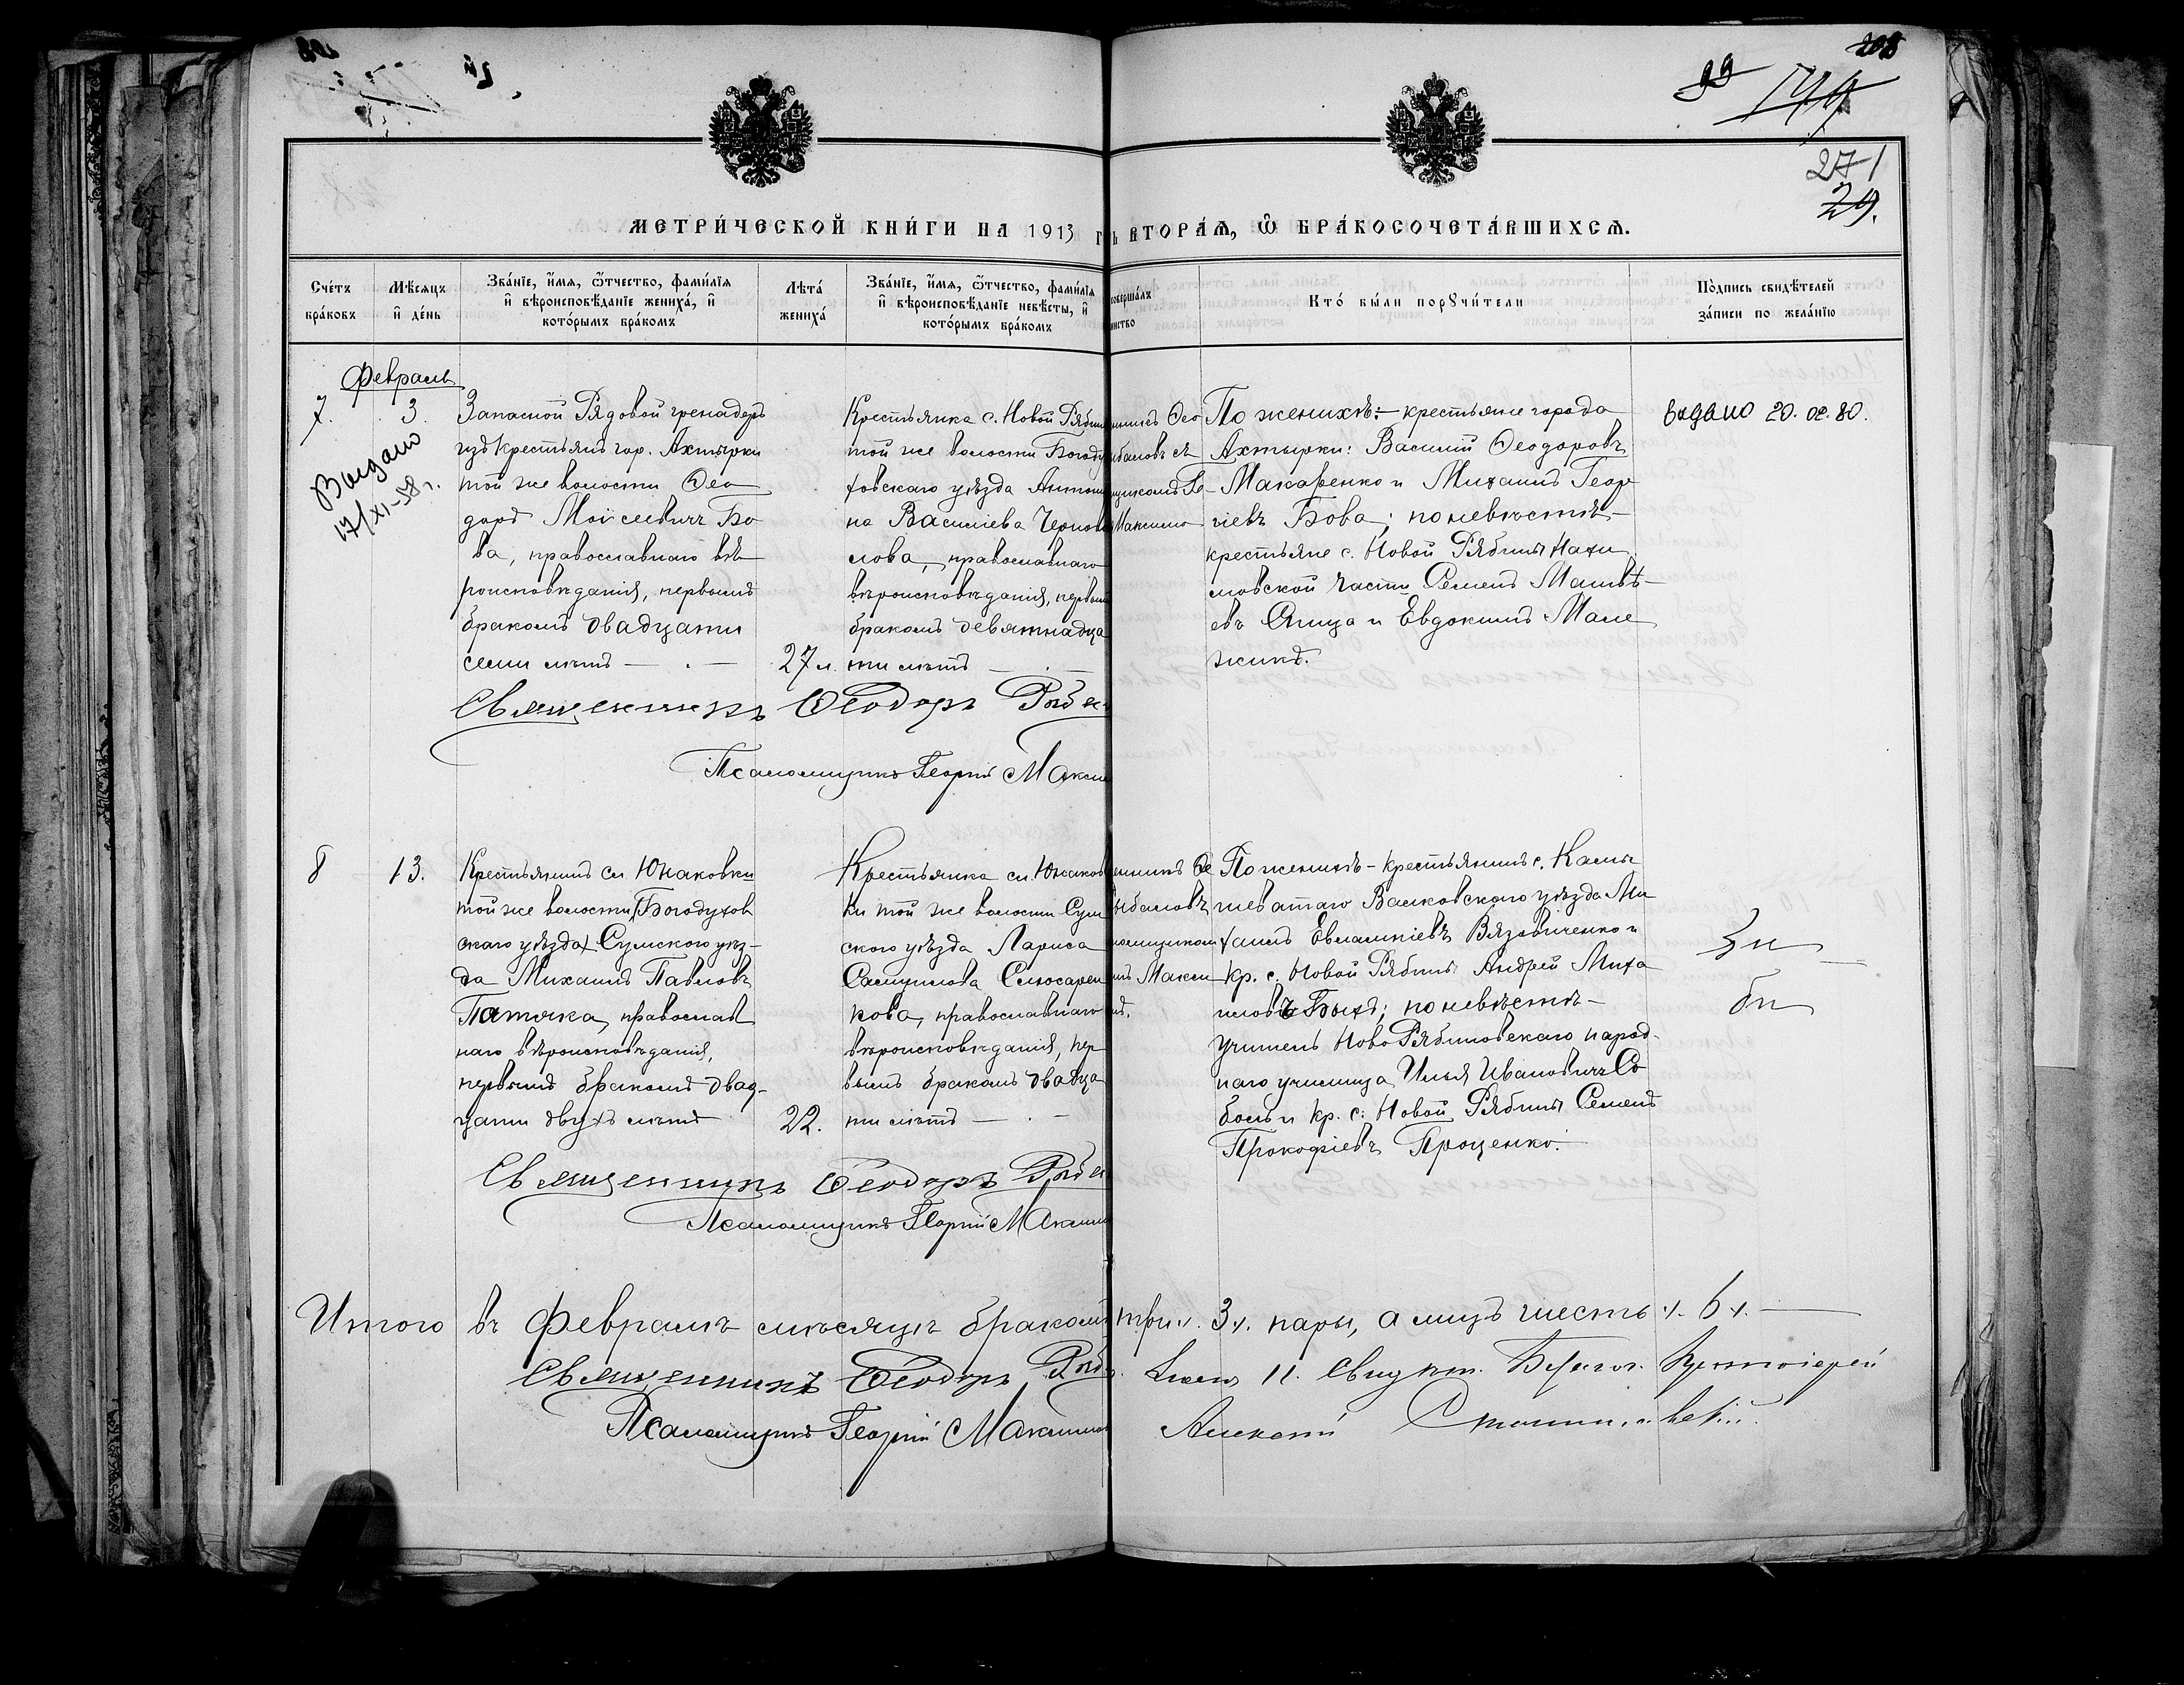 208
99
144
271
29.
МЕТРИ́ЧЕСКОЙ КНИ́ГИ НА 1913 Г
Ь ВТОРА́Ѧ, Ѡ҆ БРА́КОСОЧЕТА́ВШИХСѦ.
Сче́тъ бра́ковъ
Мѣ́сяцъ и҆ де́нь
Зва́нїе, и҆́мѧ, ѻ҆́тчество, фами́лїѧ
и҆ вѣроисповѣ́данїе жениха́, и҆
кото́рымъ бра́комъ
Лѣта́ жениха́
Зва́нїе, и҆́мѧ, ѻ҆́тчество, фами́лїѧ
и҆ вѣроисповѣ́данїе невѣ́сты, и҆
кото́рымъ бра́комъ
совершалъ
инство
Кто́ бы́ли порꙋчи́тели
По́дпись свидѣ́телей
за́писи по жела́нїю
Февраль
7. 3.
Выдано
17/XI-58 г.
Запасной Рядовой гренадеръ
изъ крестьянъ гор. Ахтырки
той же волости Ѳео
доръ Моѵсеевичъ Бо
ва, православнаго вѣ
роисповѣданія, первымъ
бракомъ двадцати
семи лѣтъ
27 л.
Крестьянка с. Новой Рябин
той же волости Богоду
ховскаго уѣзда Антон
на Василіева Чернов
лова, православнаго
вѣроисповѣданія, первым
бракомъ девятнадца
ти лѣтъ
нникъ Ѳео
баловъ съ
щикомъ Ге
Максимо
По женихѣ: крестьяне города
Ахтырки: Василій Ѳеодоровъ
Макаренко и Михаилъ Геор
гіевъ Бова; по невѣстѣ
крестьяне с. Новой Рябины
мовской части Семенъ Матвѣ
евъ и Евдокимъ Мале
жикъ.
выдано 20.02.80.
Священникъ Ѳеодоръ Рыба
Псаломщикъ Георгій Макси
8 13.
Крестьянинъ сл. Юнаковки
той же волости (Богодухов
скаго уѣзда) Сумского уѣз
да Михаилъ Павловъ
Пяточка, православ
наго вѣроисповѣданія,
первымъ бракомъ двад
цати двухъ лѣтъ
22.
Крестьянка сл. Юнаков
ки той же волости Сум
ского уѣзда Лариса
Самуилова Слюсарен
кова, православнаго
вѣроисповѣданія, пер
вымъ бракомъ двадца
ти лѣтъ
енникъ Ѳе
ыбаловъ
омщиком
ій Макси
въ.
По женихѣ - крестьянинъ с. Камы
шеватаго Валковского уѣзда Ми
хаилъ Евлампіевъ Вязовиченко и
кр. с. Новой Рябины Андрей Миха
иловъ Быхъ; по невѣстѣ
учитель Ново Рябиновскаго народ
наго училища Илья Ивановичъ Со
боль и кр. с. Новой Рябины Семенъ
Прокофіевъ Проценко.
Священникъ Ѳеодоръ Рыба
Псаломщикъ Георгій Максим
Итого въ Февралѣ мѣсяцѣ бракомъ
три 3 пары, а лицъ шесть 6
Священникъ Ѳеодоръ Рыб
Псаломщикъ Георгій Максимов
Благоч. Протоіерей
Алексій